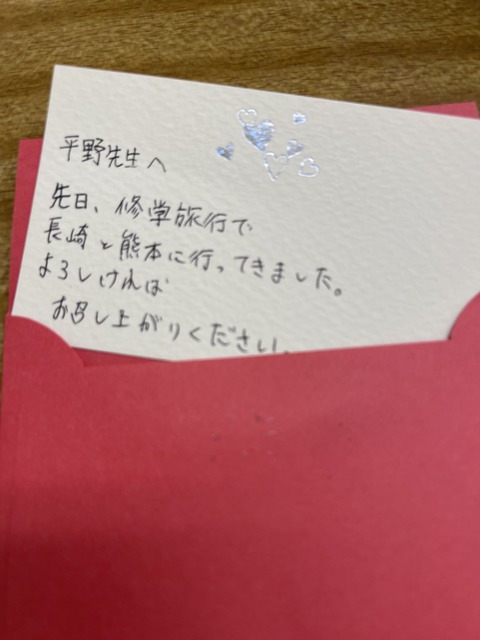 平野先生へ
先日、修学旅行で
長崎と熊本に行ってきました。
よろしければ
お召し上がりください。